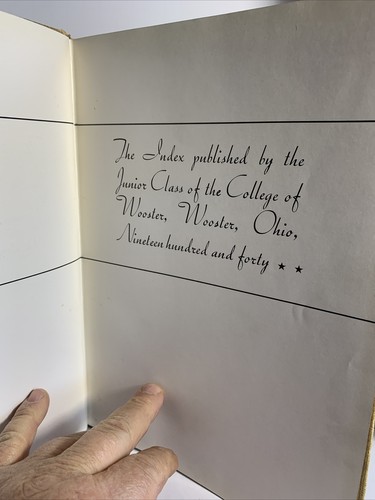 The Index published by the
Junior Class of the College of
Wooster, Wooster, Ohio,
Nineteen hundred and forty ★ ★